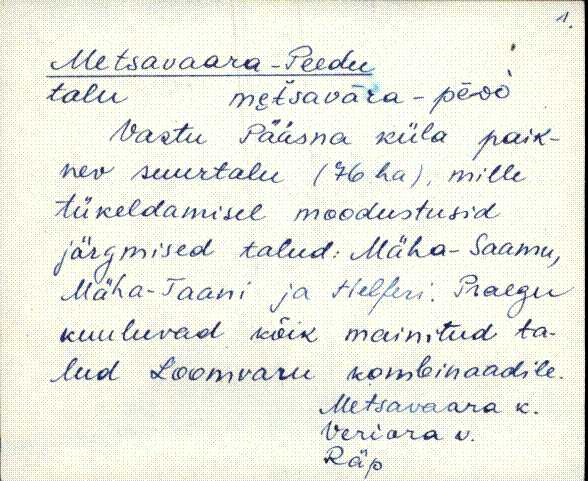 1.
Metsavaara-Peedu
talu metsavāra-pēᴅò
Vastu Pääsna küla paik-
nev suurtalu (76 ha), mille
tükeldamisel moodustusid
järgmised talud: Mäha-Saamu,
Mäha-Taani ja Helferi. Praegu
kuuluvad kõik mainitud ta-
lud Loomvaru kombinaadile.
Metsavaara k.
Veriora v.
Räp